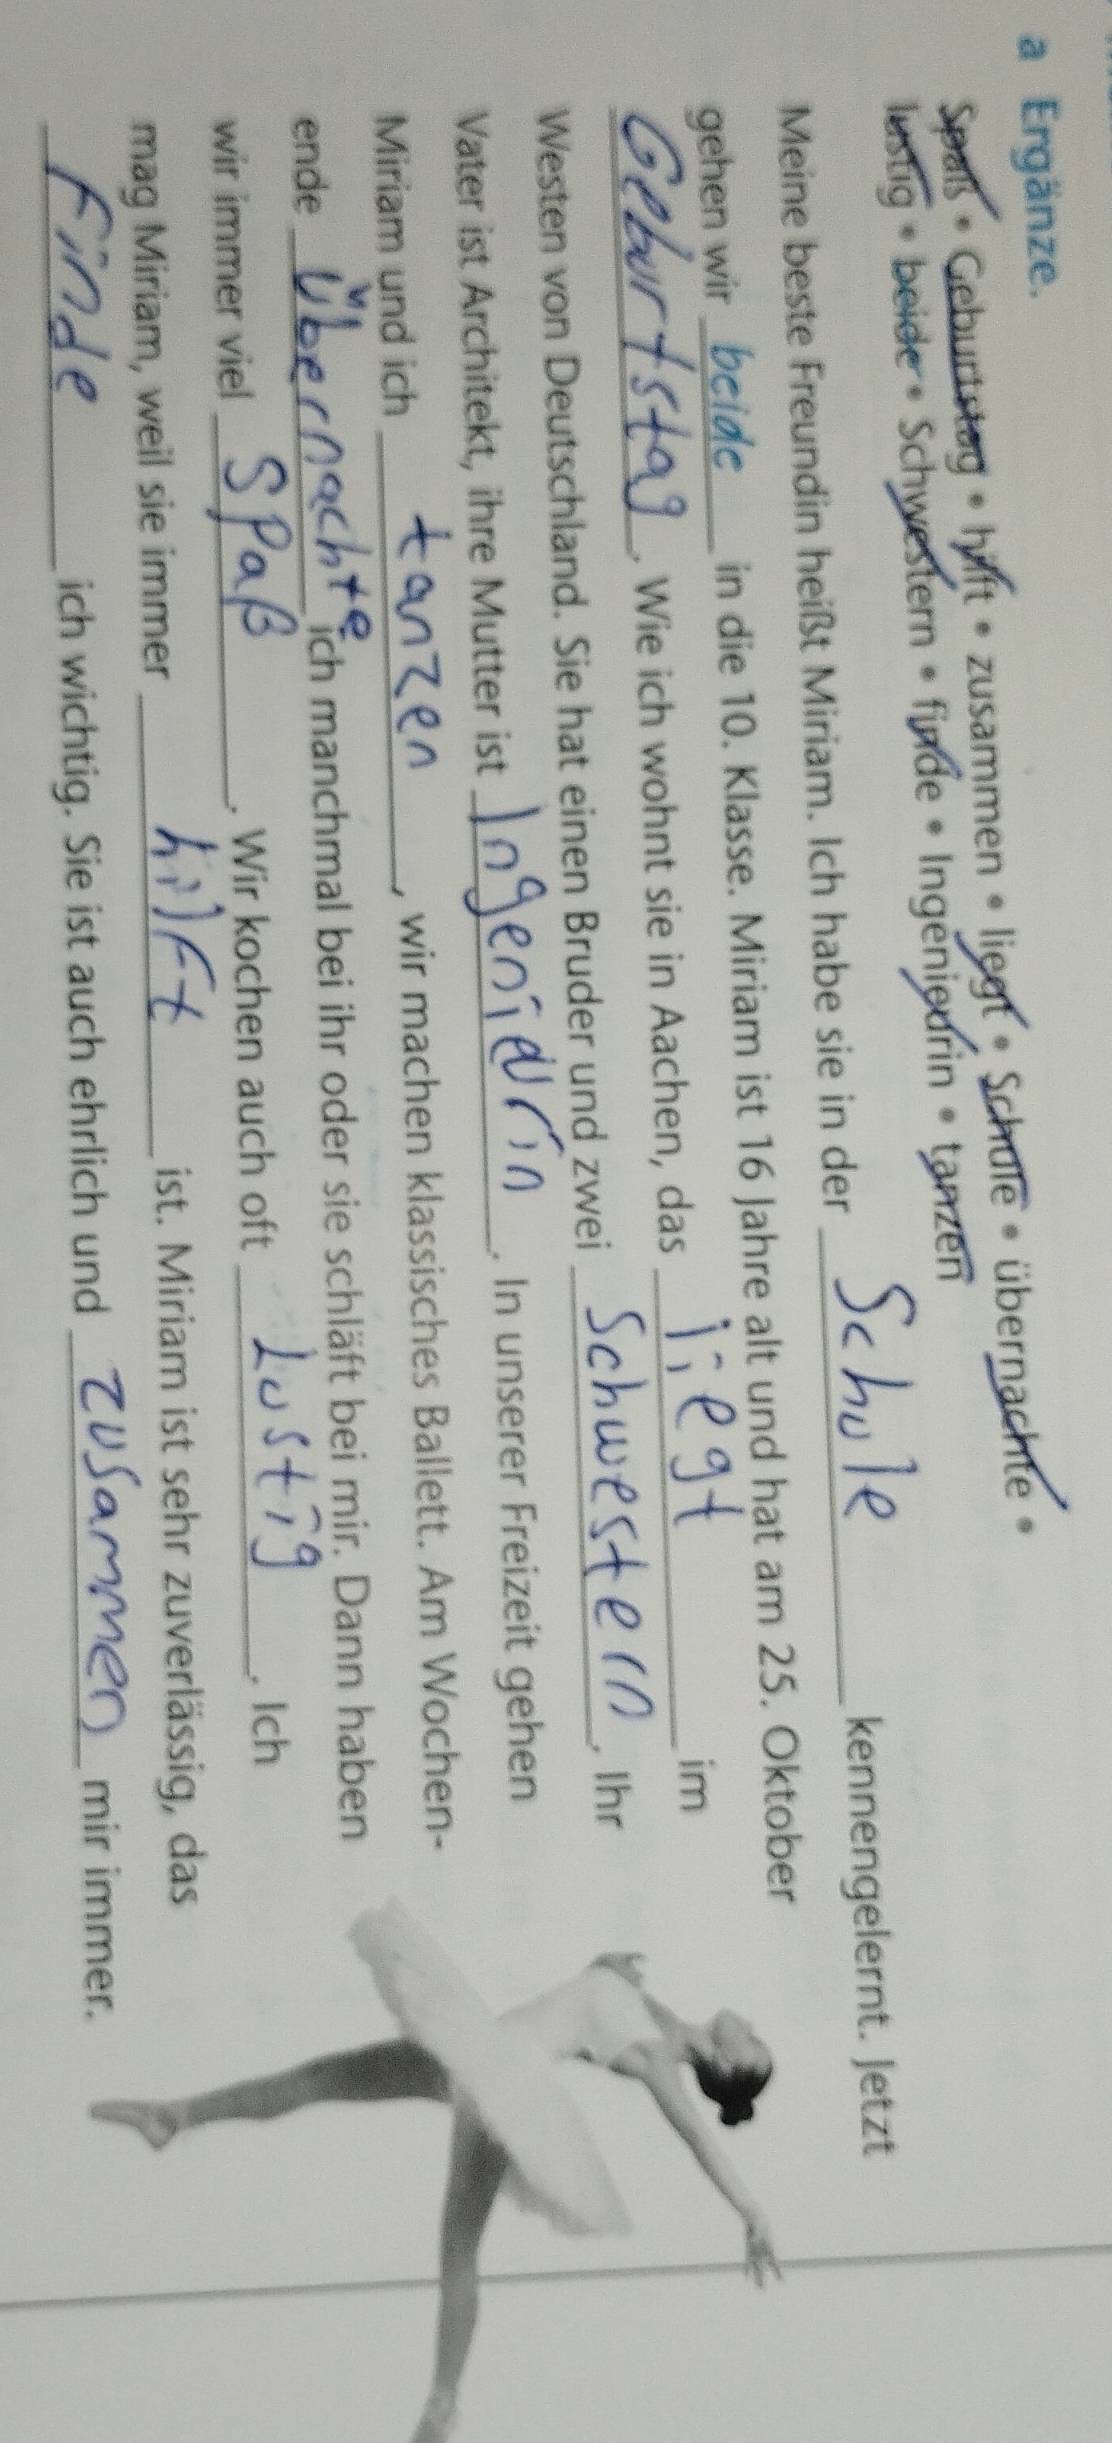 a Ergänze.
Spaß • Geburtstag • hilft • zusammen • liegt • Schule • übernachte •
lustig • beide • Schwestern • finde • Ingenieurin • tanzen
Meine beste Freundin heißt Miriam. Ich habe sie in der Schule kennengelernt. Jetzt
gehen wir beide in die 10. Klasse. Miriam ist 16 Jahre alt und hat am 25. Oktober
Geburtstag. Wie ich wohnt sie in Aachen, das liegt im
Westen von Deutschland. Sie hat einen Bruder und zwei Schwestern. Ihr
Vater ist Architekt, ihre Mutter ist Ingenieurin. In unserer Freizeit gehen
Miriam und ich tanzen, wir machen klassisches Ballett. Am Wochen-
ende übernachte ich manchmal bei ihr oder sie schläft bei mir. Dann haben
wir immer viel Spaß. Wir kochen auch oft lustig. Ich
mag Miriam, weil sie immer hilft ist. Miriam ist sehr zuverlässig, das
finde ich wichtig. Sie ist auch ehrlich und zusammen mir immer.